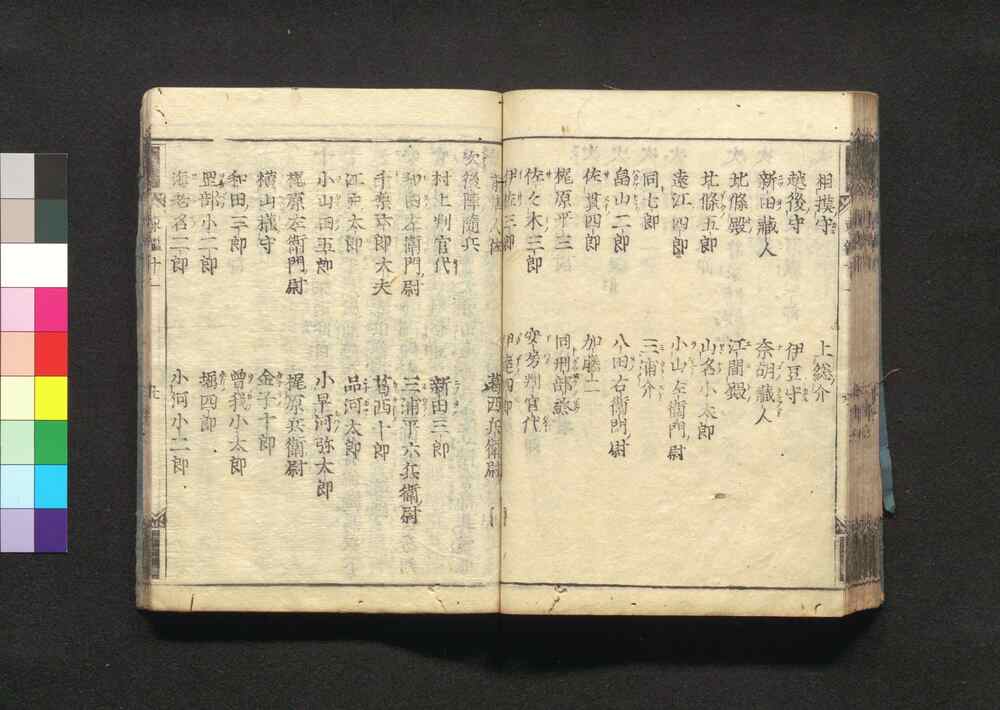 相摸守　上総介
越後守　伊豆守
新田藏人　奈胡藏人
北條殿　江間殿
北條五郎　山名小太郎
遠江四郎　小山左衛門尉
同七郎　三浦介
畠山二郎　八田右衛門尉
佐貫四郎　加藤二
梶原平三　同刑部丞
佐々木三郎　安房判官代
伊佐三郎　四郎
葛西兵衛尉
次後陣隨兵
村上判官代　新田三郎
和田左衛門尉　三浦平六兵衛尉
千葉六郎大夫　葛西十郎
江戸太郎　品河太郎
小山田五郎　小早河弥太郎
梶原左衛門尉　梶原兵衛尉
横山權守　金子十郎
和田三郎　曽我小太郎
岡部小二郎　堀四郎
海老名二郎　小河小二郎